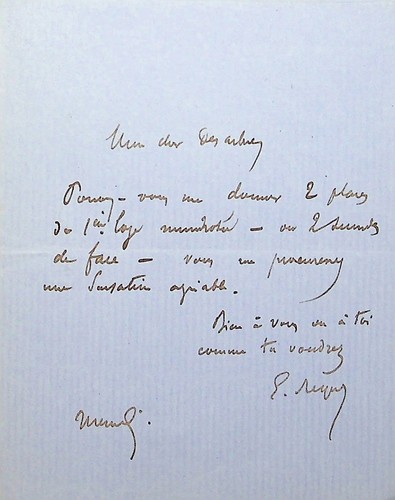 Mon cher Desarbres
Pouvez-vous me donner 2 places
de 1ère loge numérotée - ou 2 secondes
de face - vous me procurerez
une sensation agréable.
Bien à vous ou à toi
comme tu voudrez
E. Reyer
Mercredi.